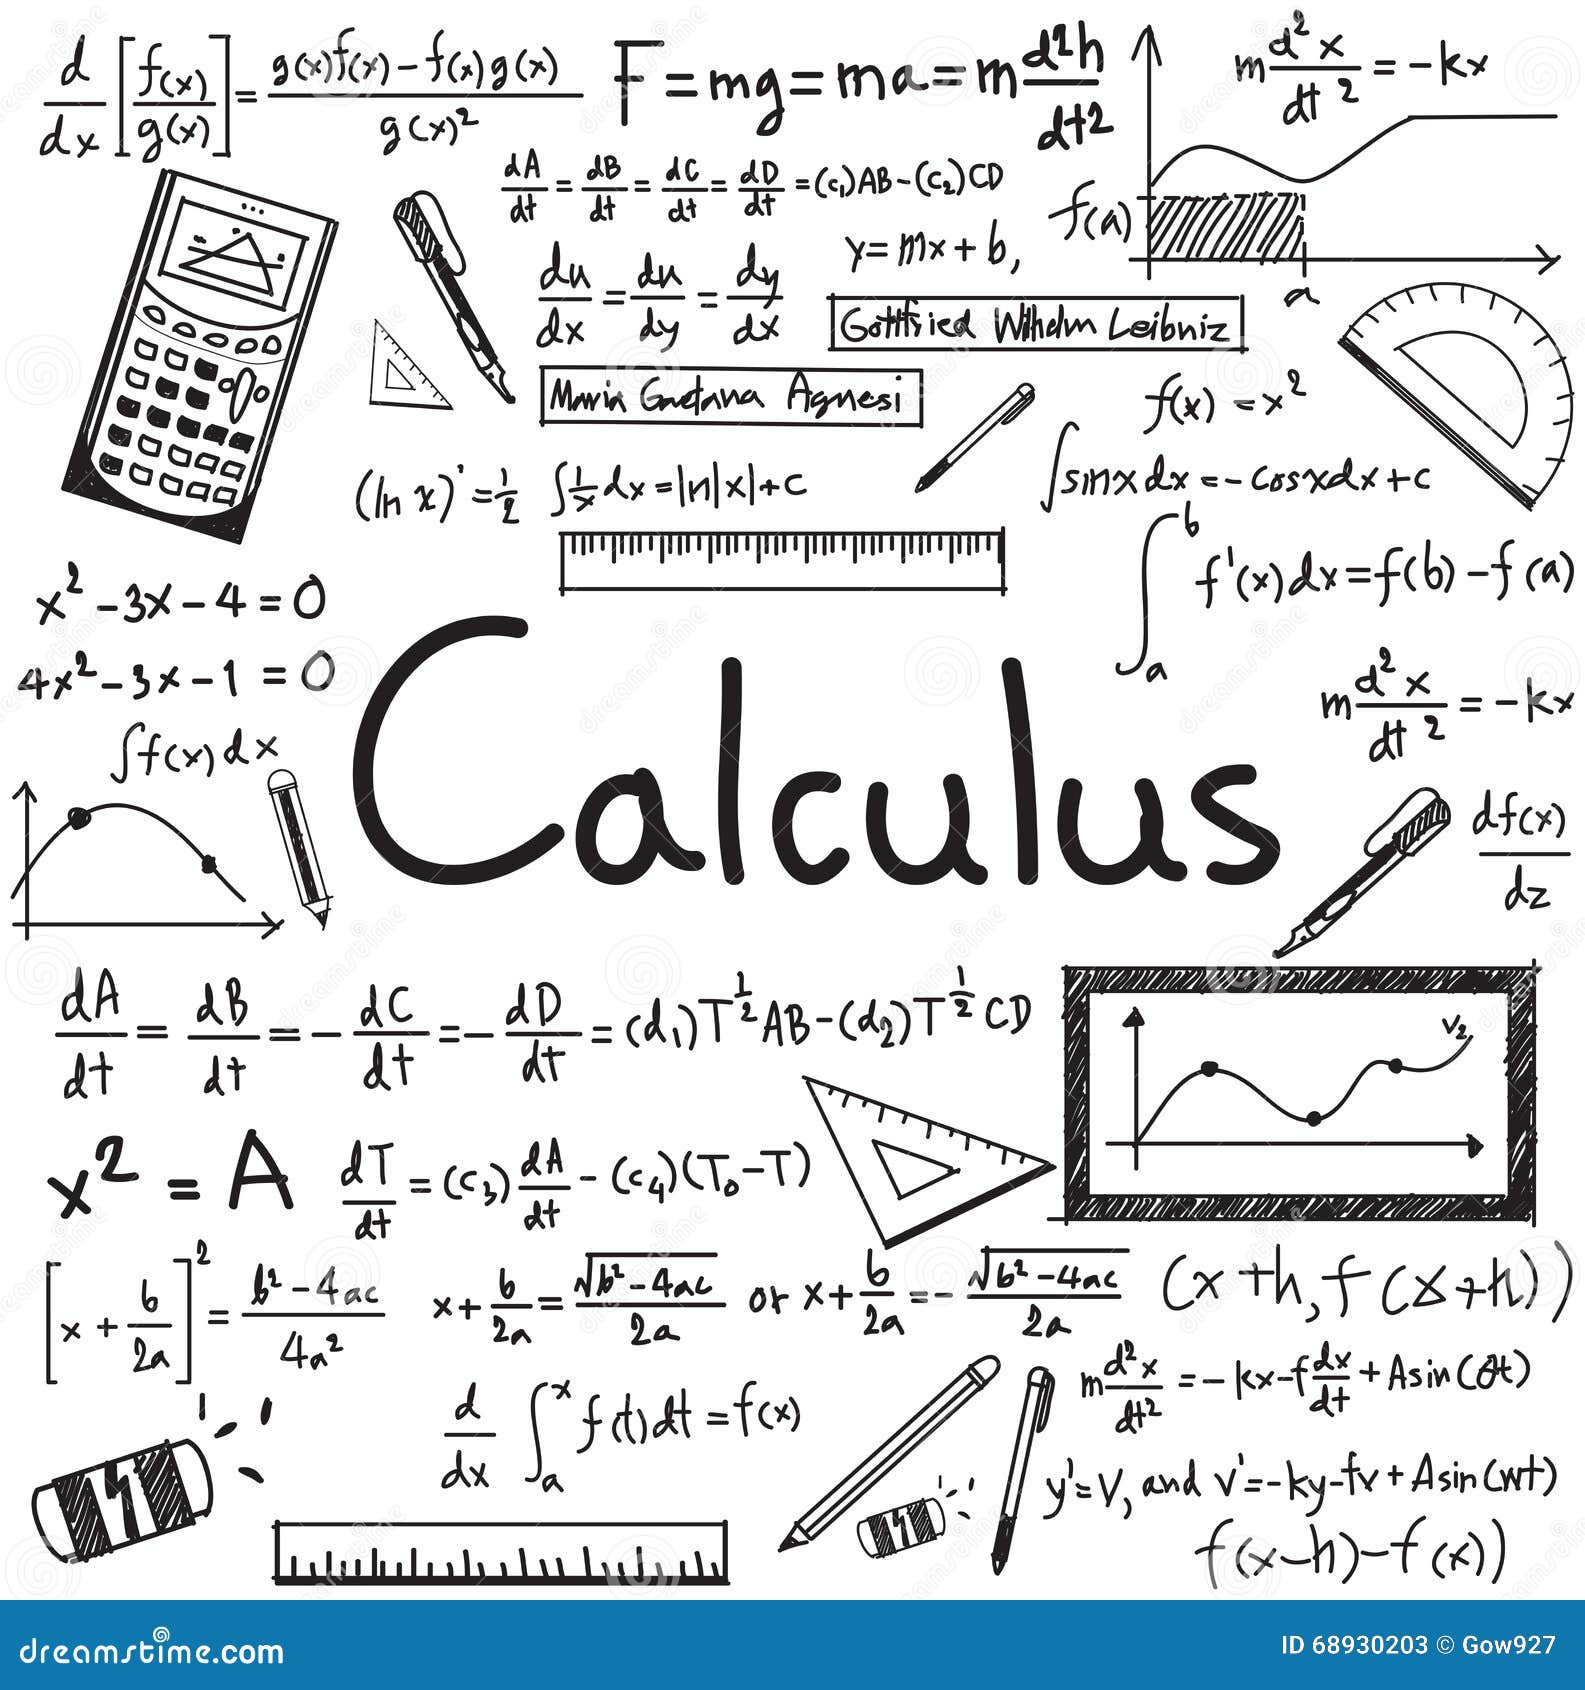 d/dx [f(x)/g(x)] = g(x)f(x) - f(x)g(x) / g(x)²
F = mg = ma = m d²h/dt²
m d²x/dt² = -kx
dA/dt = dB/dt = dC/dt = dD/dt = (c₁)AB - (c₂)CD
f(a)
a
y = mx + b,
du/dx = du/dy = dy/dx
Gottfried Wilhelm Leibniz
Maria Gaetana Agnesi
f(x) = x²
(ln x)' = 1/2
∫ 1/x dx = ln|x| + c
∫ sinx dx = - cosxdx + c
∫ₐᵇ f'(x)dx = f(b) - f(a)
x² - 3x - 4 = 0
4x² - 3x - 1 = 0
∫f(x)dx
Calculus
m d²x/dt² = -kx
df(x)/dz
dA/dt = dB/dt = - dC/dt = - dD/dt = (d₁)T^½ AB - (d₂)T^½ CD
V₂
x² = A
dT/dt = (c₃) dA/dt - (c₄)(T₀ - T)
[x + b/2a]² = b² - 4ac / 4a²
x + b/2a = √b² - 4ac / 2a or x + b/2a = - √b² - 4ac / 2a
(x + h, f(x + h))
d/dx ∫ₐˣ f(t)dt = f(x)
m d²x/dt² = - kx - f dx/dt + Asin(
y' = V, and v' = - ky - fv + Asin(wt)
f(x - h) - f(x))
dreamstime.com
ID 68930203 © Gow927